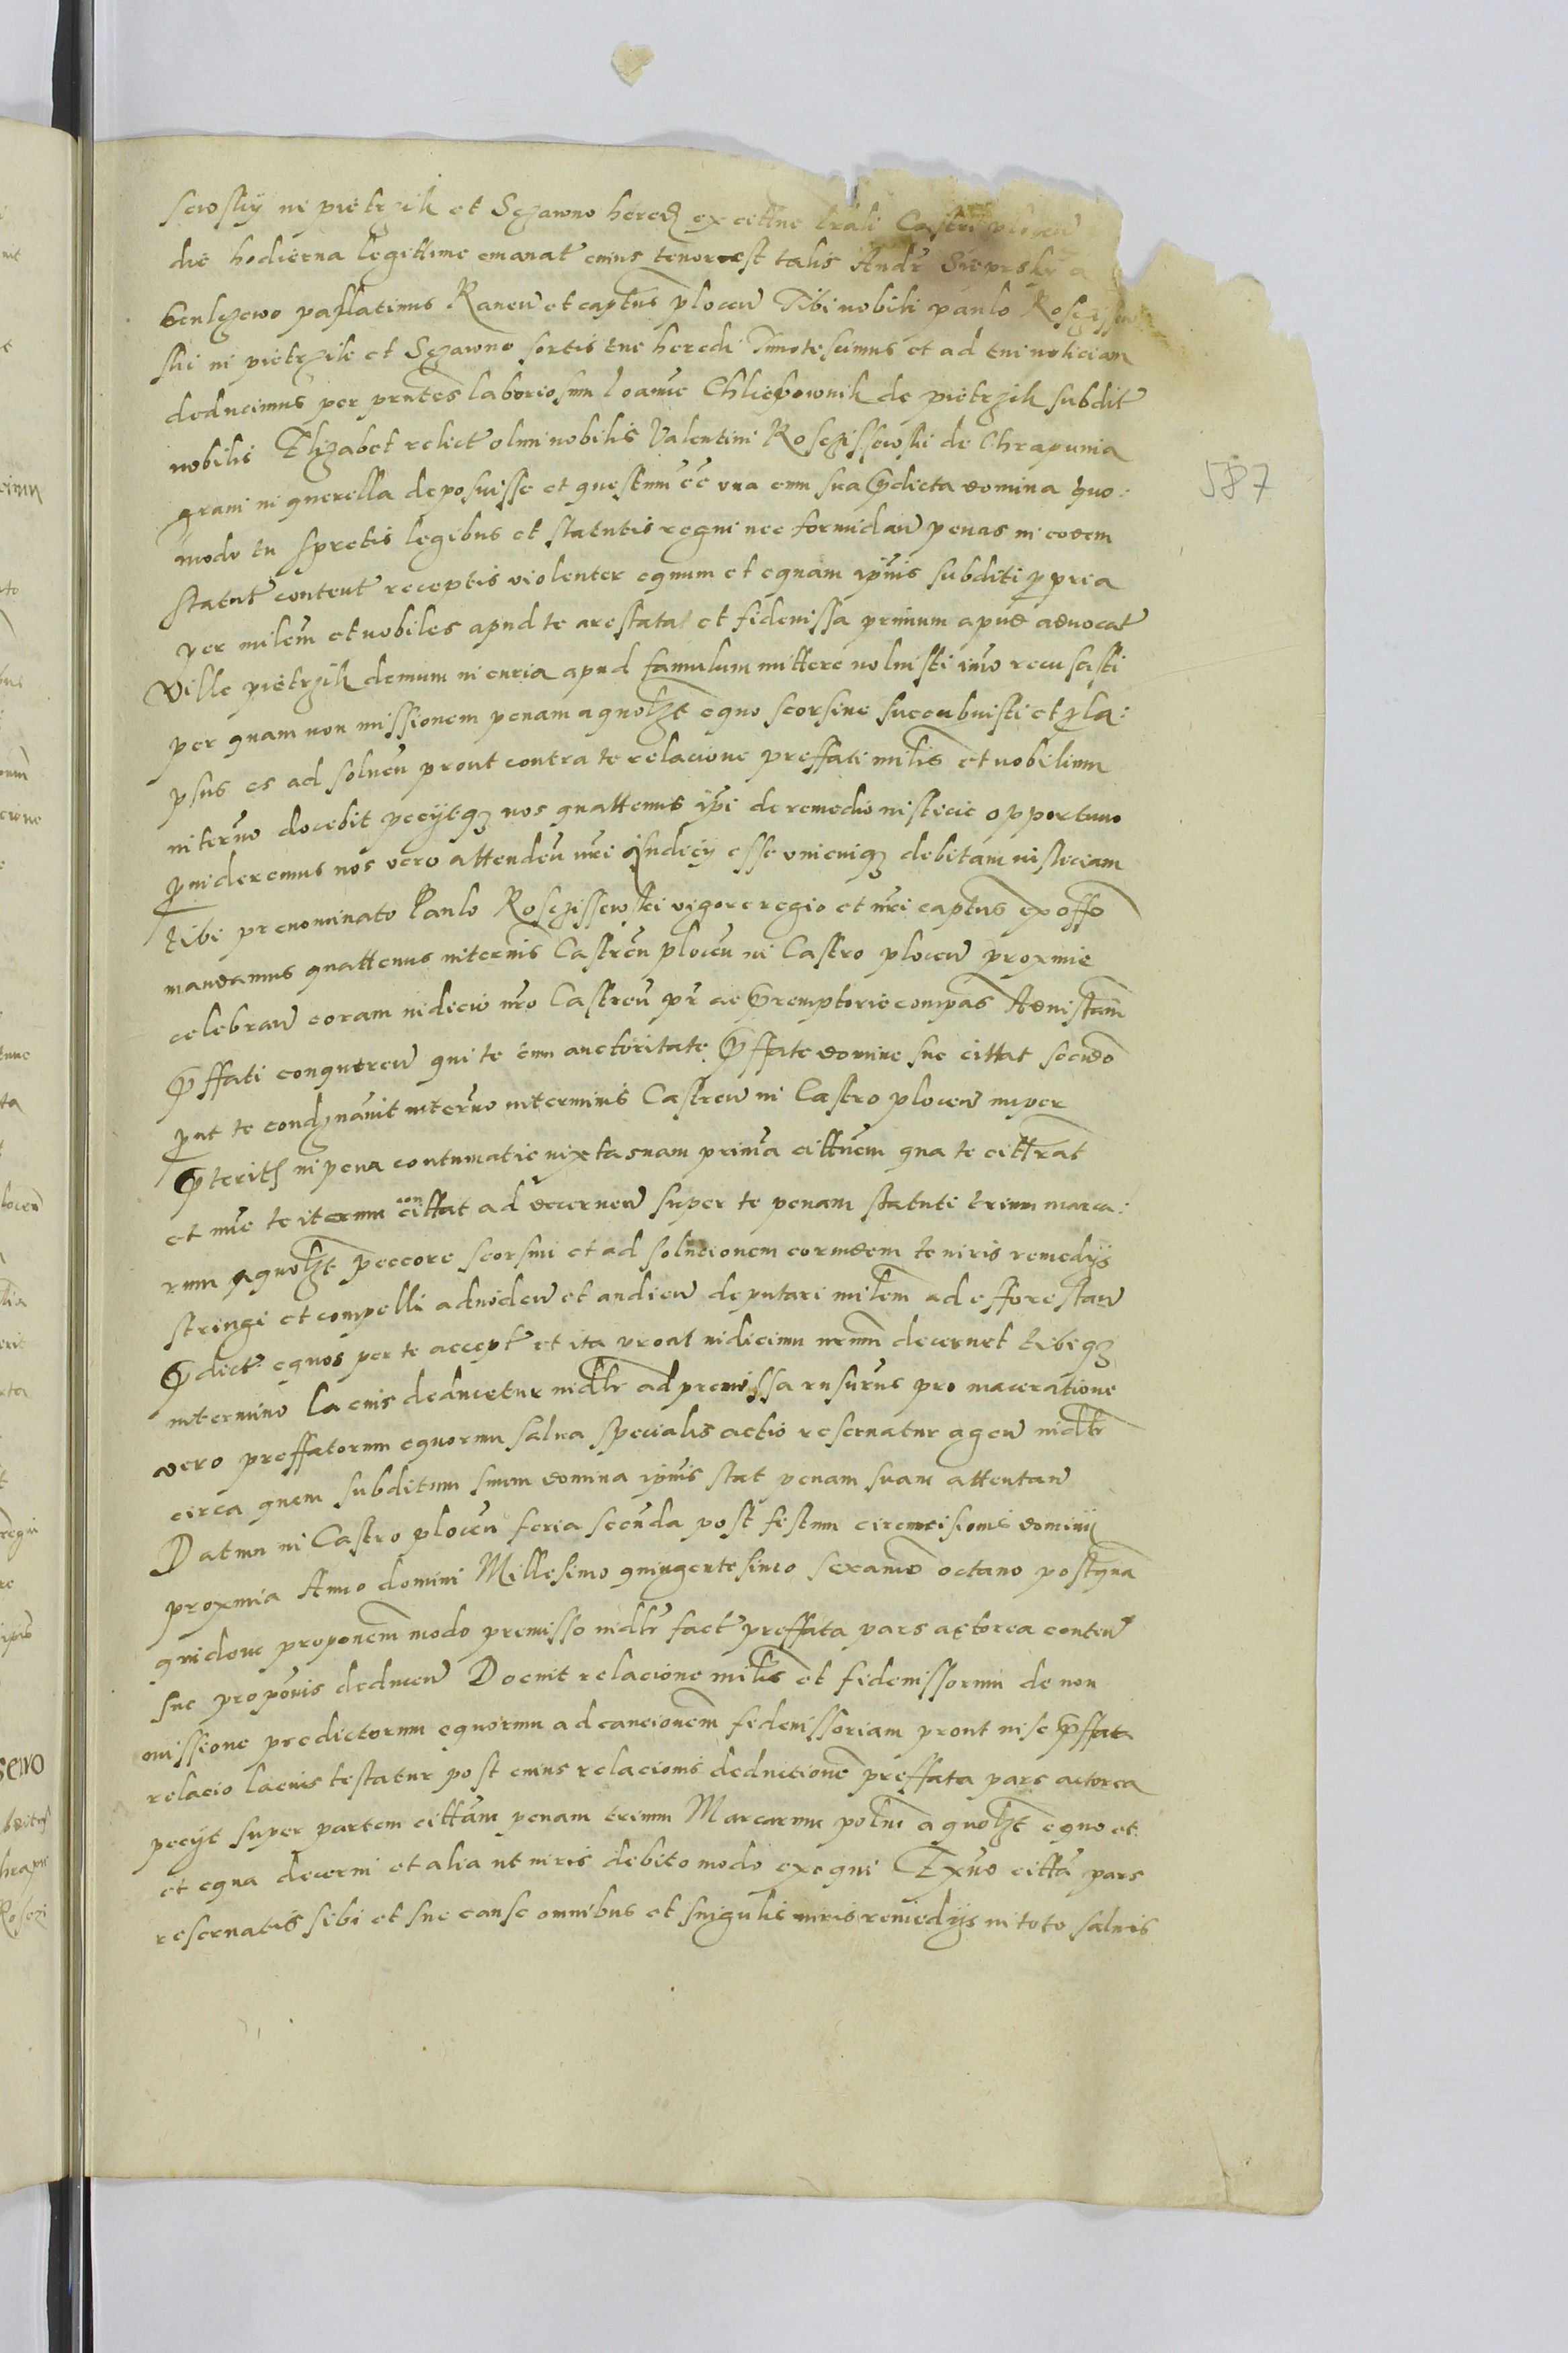 sewskỹ in pietrzik et Szawno hered ex cittne trali Castri plocen
die hodierna legittime emanat cuius tenor est talis Andr Sieprskỹ a
Gulczewo pallatinus Raven et captus plocen Tibi nobili paulo Rosczissew
ski in pietrzik et Szawno sortis tue heredi Innotescimus et ad tui noticiam
deducimus per pntes laboriosum Ioanne Chliebownik de pietrzik subdit
nobilis Elizabet relict olim nobilis Valentini Rosczissewski de Chrapunia
grani in querella deposuisse et questum ee vna cum sua pdicta domina quo:
modo tu spretis legibus et statutis regni nec formidan penas in eodem
statut content receptis violenter equum et equam ipius subditi ppria
per milem et nobiles apud te arestata et fideiussa primum apud aduocat
Ville pietrzik demum in curia apud famulum mittere noluisti imo recusasti
per quam non missionem penam a quolzt equo seorsine succubuisti et pla:
psus es ad soluen prout contra te relacione preffati milis et nobilium
in termo docebit peciitqz nos quattenus ipi de remedio iusticie opportuno
puideremus nos vero attenden nri Iudicy esse vnicuiqz debitam iusticiam
tibi prenominato Paulo Rosczissewski vigore regio et nri captus ex offo
mandamus quattenus in termis Castren plocen in Castro plocen proxmie
celebran coram iudicio nro Castren pr ac premptorie compas Ad instam
pffati conqueren qui te cum auctoritate pffate domine sue cittat secudo
put te condznauit in termo in terminis Castren in Castro plocen nuper
pterit in pena contumatie iuxta suam prima cittnem qua te cittrat
et nuc te iterum con cittat ad decernen super te penam statuti trium marca:
rum a quolzt peccore seorsim et ad solucionem eorudem te iuris remedys
stringi et compelli ad uiden et audien deputari milem ad efforestan
pdict equos per te accept et ita prout iudicium nrum decernet tibiqz
in termino lacius deducetur iudlr ad premissa rnsurus pro maceratione
vero preffatorum equorum salua specialis actio reseruatur agen iudlr
circa quem subditum suum domina ipius stat penam suam attentan
Datum in Castro plocen feria secuda post festum circumcisionis domini
proxmia Anno domini Millesimo quingentesimo sexamo octauo postqua
quidem proponem modo premisso iudlr fact preffata pars actorea conten
sue proponis deducen Docuit relacione milis et fideiussorum de non
missione predictorum equorum ad caucionem fideiussoriam prout in se pffat
relacio lacius testatur post cuius relacionis deductione preffata pars actorea
peciit super partem cittam penam trium Marcarum polni a quolzt equo et
et equa decerni et alia ut iuris debito modo exequi Exuo citta pars
reseruatis sibi et sue cause omnibus et singulis iuris remedys in toto saluis
587